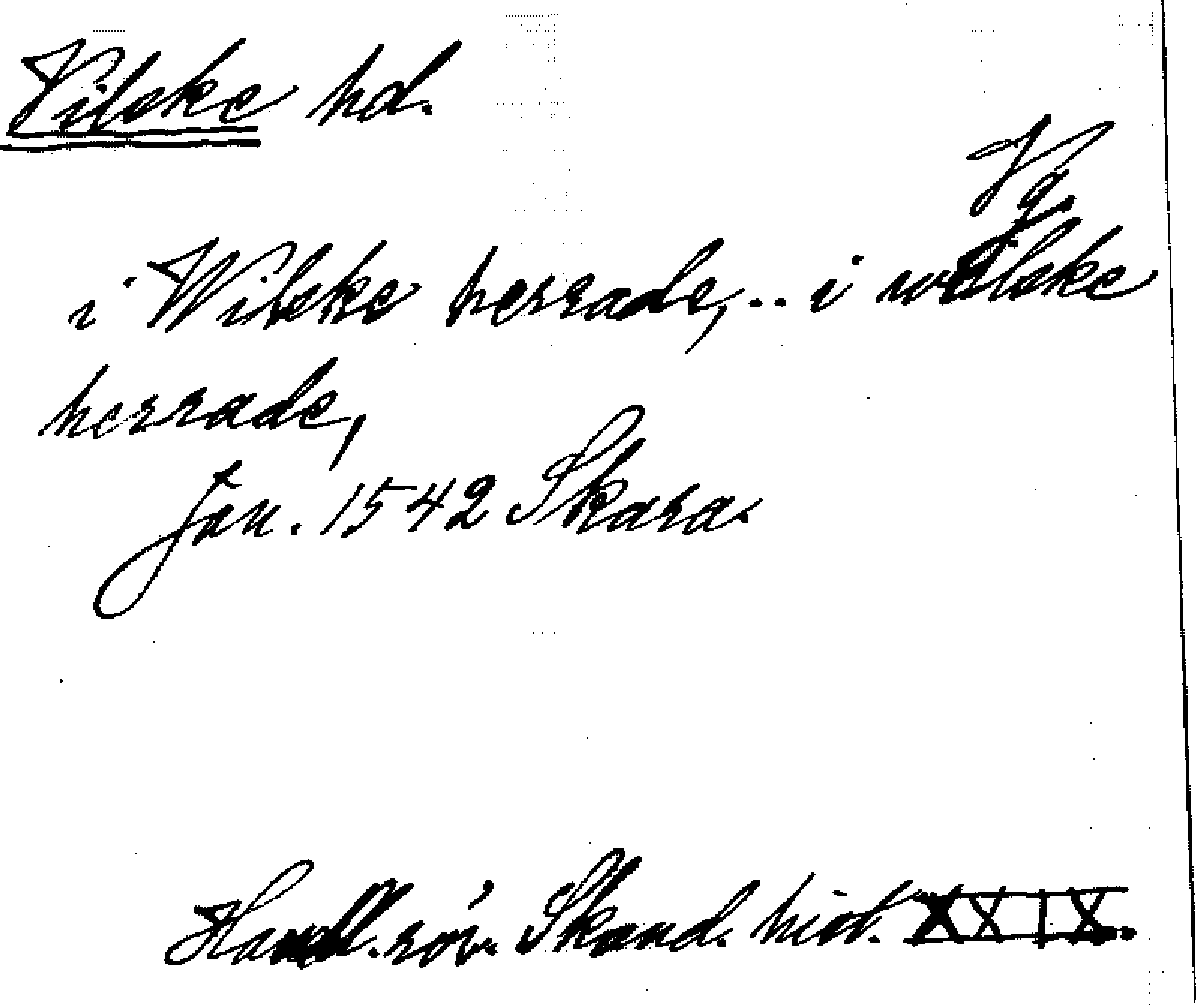 Vilske hd.
Vg.
i Wilske herrade, .. i wilske
herrade,
Jan. 1542 Skara.
Handl. rör. Skand. hist. XXIX.